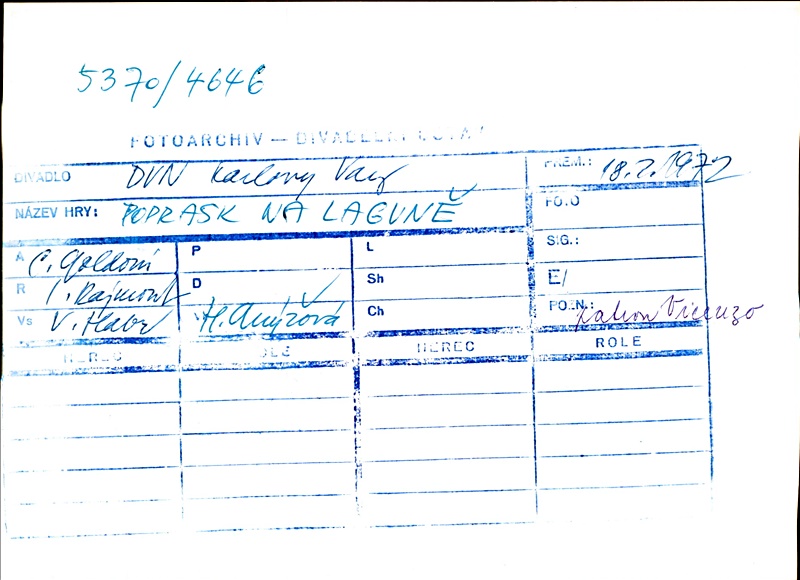 5370/4646
FOTOARCHIV — DIVADELNÍ
DIVADLO DVN Karlovy Vary PREM.: 18.2.1972
NÁZEV HRY: POPRASK NA LAGUNĚ FOTO
A C. Goldoni P L SIG.:
R I. Rajmont D Sh E/
Vs V. Habr H. Anýžová Ch POZN.: Vicenzo
HEREC ROLE HEREC ROLE